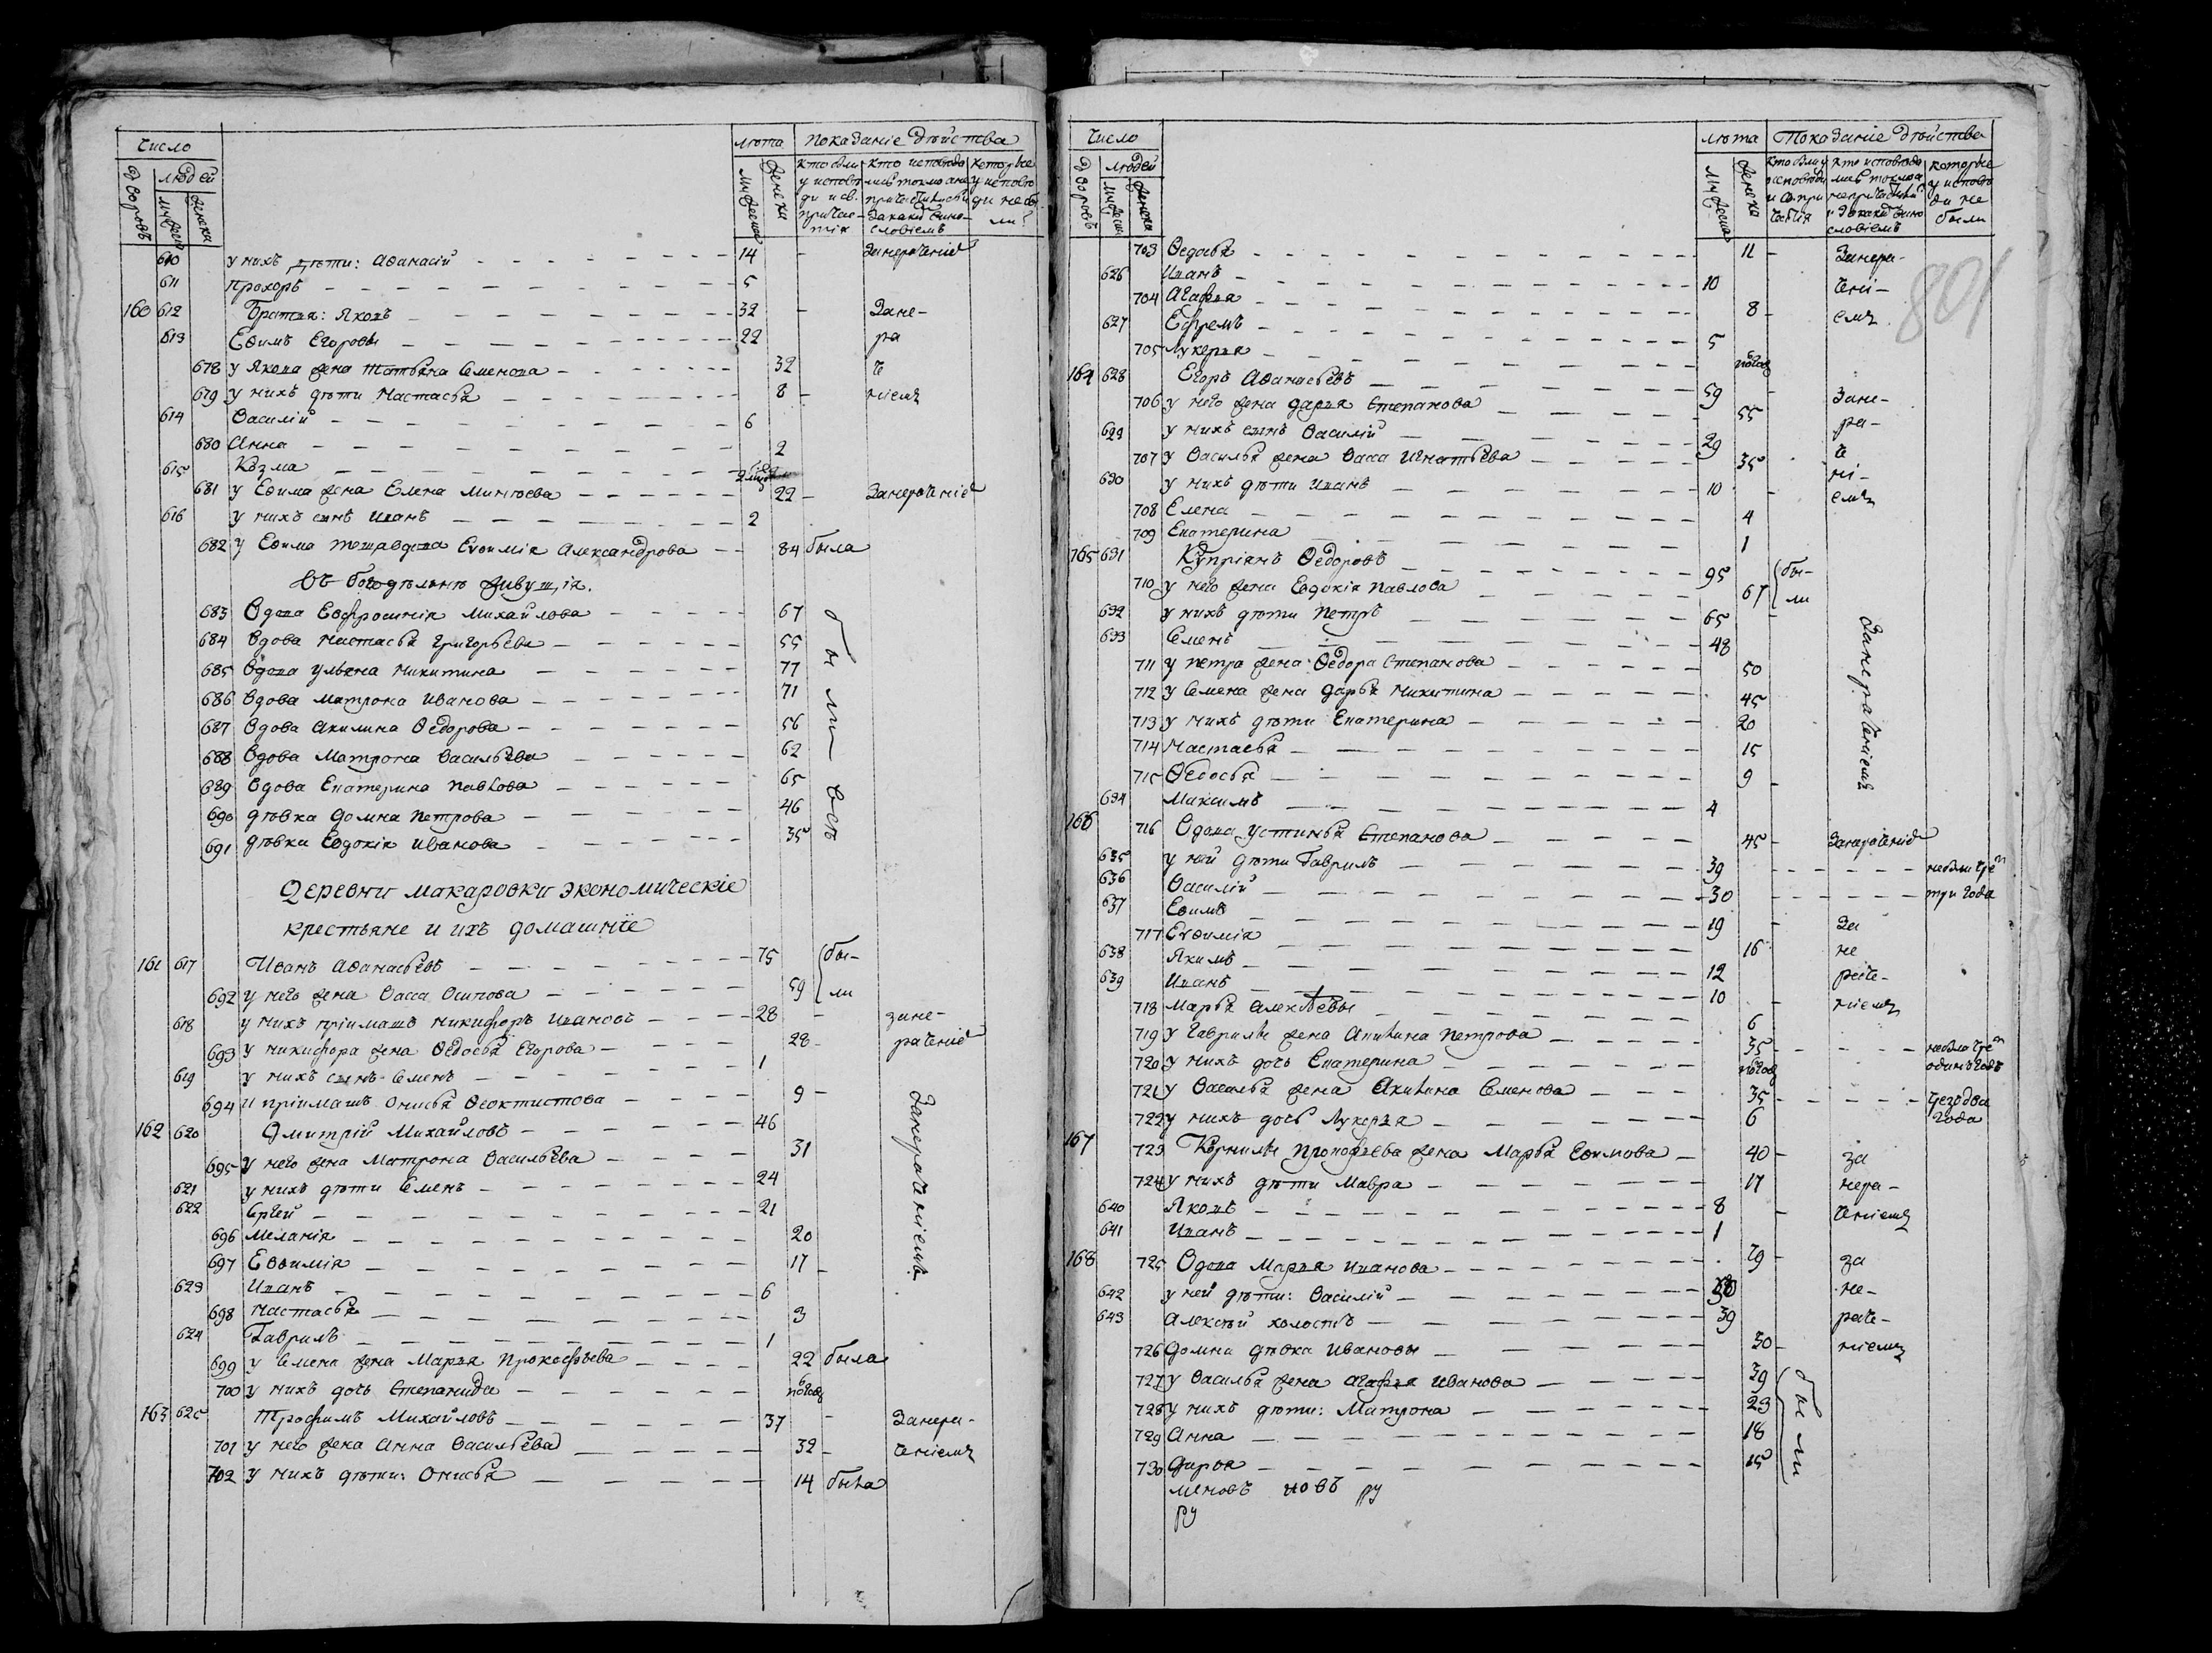 Число лѣта Показаніе дѣйства
Дворовъ людей мужеска женска мужеска женска
кто были у исповѣди и св. причастія
кто исповѣдались токмо а не причастились и за какимъ винословіемъ
которые у исповѣди не были
610 у нихъ дѣти: Аѳанасій 14 - занераченіе
611 Прохоръ 5
160 612 Братья: Яковъ 32 - Зане-
613 Еѳимъ Егоровы 22 ра
678 у Якова жена Татьяна Семенова 32 ч
679 у нихъ дѣти Настасья 8 - ніемъ
614 Василій 6
680 Анна 2
615 Козма
681 у Еѳима жена Елена Минѣева 22 - Занераченіе
616 у нихъ сынъ Иванъ 2
682 у Еѳима Евѳимія Александрова 84 была
Въ богодѣльнѣ живущія.
683 Вдова Евфросинія Михайлова 67
684 Вдова Настасья Григорьева 55
685 Вдова Ульяна Никитина 77
686 Вдова Матрона Иванова 71
687 Вдова Акилина Ѳедорова 56
688 Вдова Матрона Васильева 62
689 Вдова Екатерина Павлова 65
690 дѣвка Домна Петрова 46
691 дѣвка Евдокія Иванова 35
были всѣ
Деревни Макаровки экономическіе
крестьяне и ихъ домашніе
161 617 Иванъ Аѳанасьевъ 75 бы-
692 у него жена Васса Осипова 59 ли
618 у нихъ пріимашъ Никифоръ Ивановъ 28 - зане-
693 у Никифора жена Ѳедосья Егорова 28 - раченіе
619 у нихъ сынъ Семенъ 1
694 и пріимашъ Онисья Ѳеоктистова 9 -
162 620 Дмитрій Михайловъ 46
695 у него жена Матрона Васильева 31
621 у нихъ дѣти Семенъ 24
622 Сргей 21
696 Меланія 20
697 Евѳимія 17
623 Иванъ 6
698 Настасья 3
624 Гаврилъ 1
Занераченіемъ
699 у Семена жена Марья Прокофьева 22 была
700 у нихъ дочь Степанида полгода
163 625 Трофимъ Михайловъ 37 - Занера-
701 у него жена Анна Васильева 32 - ченіемъ
702 у нихъ дѣти: Онисья 14 была
Число лѣта Показаніе дѣйства
Дворовъ людей мужеска женска мужеска женска
кто были у исповѣди и св. причастія
кто исповѣдались токмо а не причастились и за какимъ винословіемъ
которые у исповѣди не были
801
703 Ѳедосья 11 - Занера-
626 Иванъ 10 чені-
704 Агафья 8 - емъ
627 Ефремъ 5
705 Лукерья полгода
164 628 Егоръ Аѳанасьевъ 59 - Зане-
706 у него жена Дарья Степанова 55 ра-
629 у нихъ сынъ Василій 29 ч
707 у Василья жена Васса Игнатьева 35 ні-
630 у нихъ дѣти Иванъ 10 - емъ
708 Елена 4
709 Екатерина 1
165 631 Купріянъ Ѳедоровъ 95 бы-
710 у него жена Евдокія Павлова 67 ли
632 у нихъ дѣти Петръ 65 -
633 Семенъ 48
711 у Петра жена Ѳедора Степанова 50
712 у Семена жена Дарья Никитина 45
713 у нихъ дѣти Екатерина 20
714 Настасья 15
715 Ѳедосья 9 -
Занераченіемъ
634 Максимъ 4
166 716 Вдова Устинья Степанова 45 - Занераченіе
635 у ней дѣти Гаврилъ 39 не были чрез
636 Василій 30 три года
637 Еѳимъ 19 - За
717 Евѳимія 16 не
638 Якимъ 12 раче-
639 Иванъ 10 - ніемъ
718 Марья Алексѣевы 6
719 у Гаврилы жена Акилина Петрова 35 не была чрез
720 у нихъ дочь Екатерина полгода одинъ годъ
721 у Василья жена Акилина Семенова 35 чрез два
722 у нихъ дочь Лукерья 6 года
167 723 Корнилы Прокофьева жена Марья Еѳимова 40 - за
724 у нихъ дѣти Мавра 17 нера-
640 Яковъ 8 - ченіемъ
641 Иванъ 1
168 725 Вдова Марья Иванова 79 - за
642 у ней дѣти: Василій не-
643 Алексѣй холостъ 39 раче-
726 Домна дѣвка Ивановы 30 - ніемъ
727 у Василья жена Агафья Иванова 39
728 у нихъ дѣти: Матрона 23
729 Анна 18
730 Фирса 15
были
меновъ новъ ру
ру